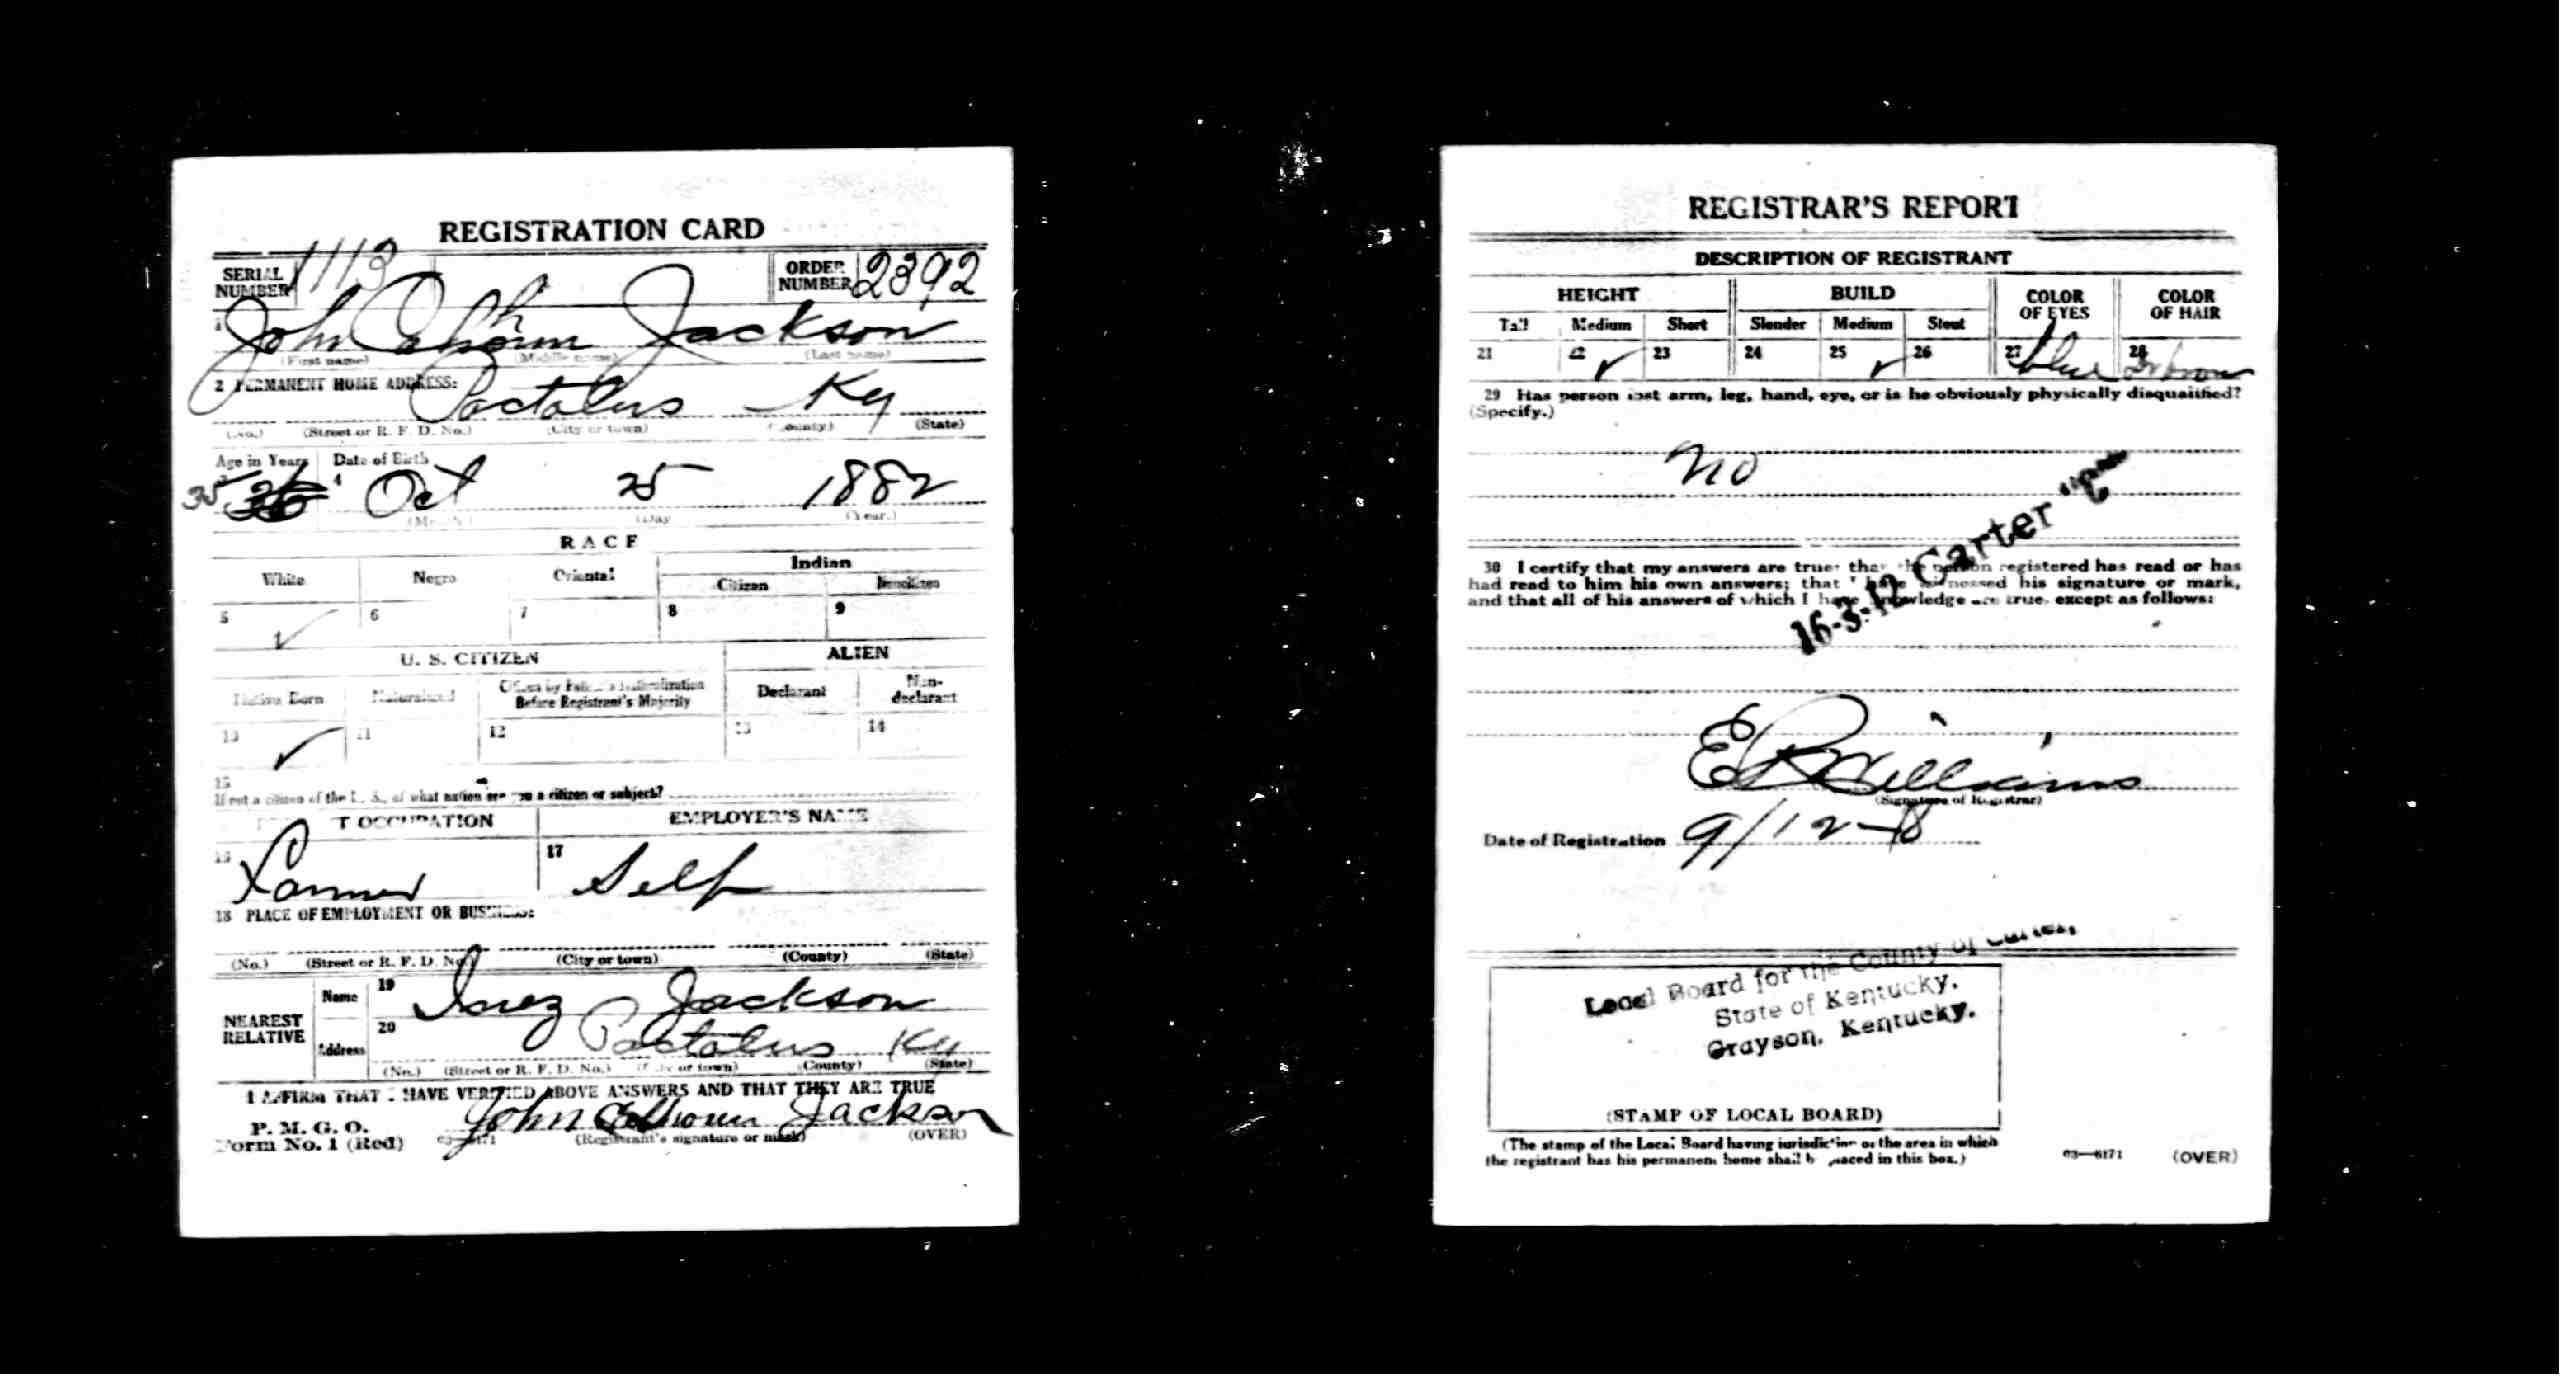 REGISTRATION CARD
SERIAL NUMBER 1113 ORDER NUMBER 2392
1 John Calhoun Jackson
(First name) (Middle name) (Last name)
2 PERMANENT HOME ADDRESS:
Pactolus Ky
(No.) (Street or R. F. D. No.) (City or town) (County) (State)
Age in Years Date of Birth
35 36 4 Oct 25 1882
(Month) (Day (Year.)
RACE
White Negro Oriental Indian
Citizen Noncitizen
5 ✓ 6 7 8 9
U. S. CITIZEN ALIEN
Native Born Naturalized Citizen by Father's Naturalization Before Registrant's Majority Declarant Non-declarant
10 ✓ 11 12 13 14
15
If not a citizen of the U. S., of what nation are you a citizen or subject?
T OCCUPATION EMPLOYER'S NAME
16 Farmer 17 Self
18 PLACE OF EMPLOYMENT OR BUSINESS:
(No.) (Street or R. F. D. No.) (City or town) (County) (State)
NEAREST RELATIVE Name 19 Inez Jackson
Address 20 Pactolus Ky
(No.) (Street or R. F. D. No.) (City or town) (County) (State)
I AFFIRM THAT I HAVE VERIFIED ABOVE ANSWERS AND THAT THEY ARE TRUE
P. M. G. O.
Form No. 1 (Red) 03—6171 John Calhoun Jackson
(Registrant's signature or mark) (OVER)
REGISTRAR'S REPORT
DESCRIPTION OF REGISTRANT
HEIGHT BUILD COLOR OF EYES COLOR OF HAIR
Tall Medium Short Slender Medium Stout
21 22 ✓ 23 24 25 ✓ 26 27 blue 28
29 Has person lost arm, leg, hand, eye, or is he obviously physically disqualified?
(Specify.)
no
16-3-12 Carter "C"
30 I certify that my answers are true; that the person registered has read or has
had read to him his own answers; that I have witnessed his signature or mark,
and that all of his answers of which I have knowledge are true, except as follows:
E R Williams
(Signature of Registrar)
Date of Registration 9/12-18
Local Board for the County of Carter,
State of Kentucky,
Grayson, Kentucky.
(STAMP OF LOCAL BOARD)
(The stamp of the Local Board having jurisdiction of the area in which
the registrant has his permanent home shall be placed in this box.)
03—6171 (OVER)